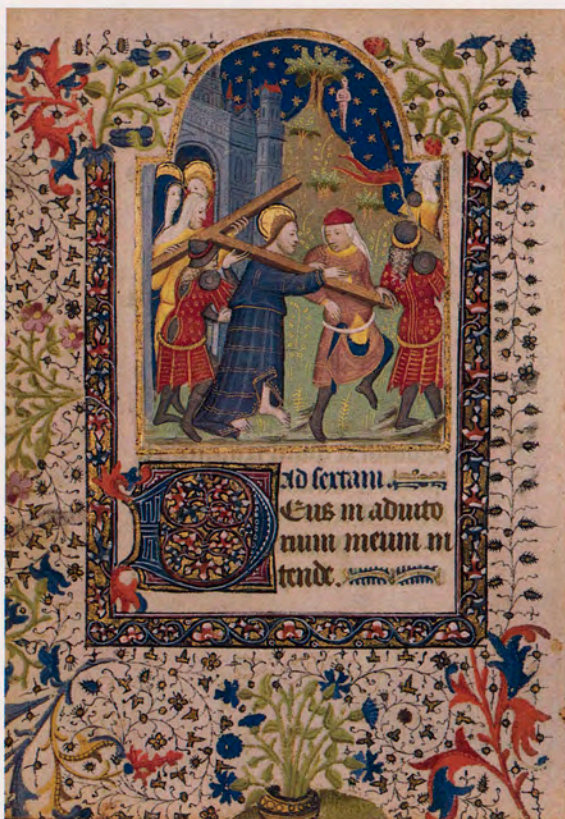 Ad sextam.
Deus in adiuto
rium meum in
tende.